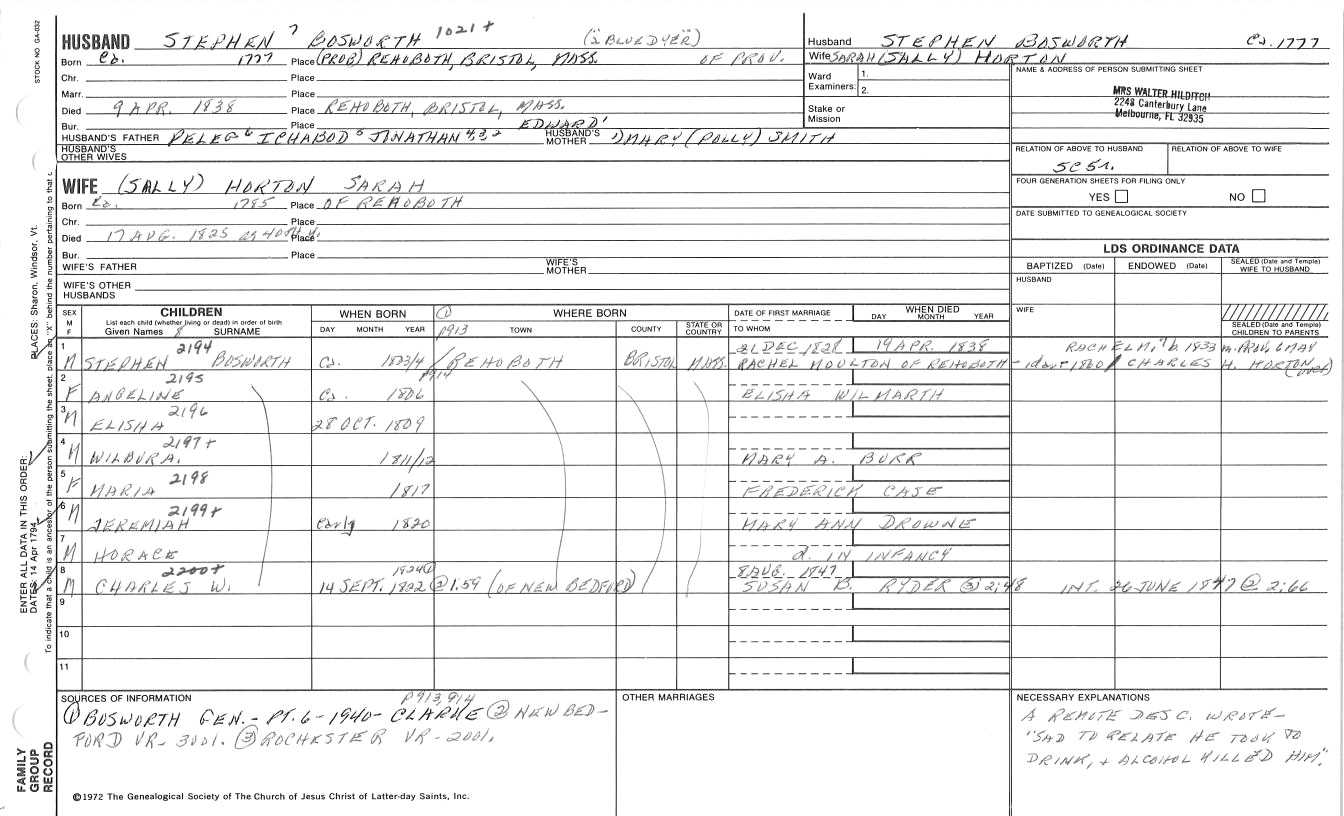 STOCK NO. GA-032
HUSBAND STEPHEN 7 BOSWORTH 1021+ ("BLUE DYER")
Born Ca. 1777 Place (PROB) REHOBOTH, BRISTOL, MASS. OF PROV.
Chr. Place
Marr. Place
Died 9 APR. 1838 Place REHOBOTH, BRISTOL, MASS.
Bur. Place EDWARD 1
HUSBAND'S FATHER PELEG 6 ICHABOD 5 JONATHAN 4,3,2 HUSBAND'S MOTHER 1) MARY (POLLY) SMITH
HUSBAND'S OTHER WIVES
WIFE (SALLY) HORTON SARAH
Born Ca. 1785 Place OF REHOBOTH
Chr. Place
Died 17 AUG. 1825 Place
Bur. Place
WIFE'S FATHER WIFE'S MOTHER
WIFE'S OTHER HUSBANDS
Husband STEPHEN BOSWORTH Ca. 1777
Wife SARAH (SALLY) HORTON
Ward Examiners: 1. 2.
Stake or Mission
NAME & ADDRESS OF PERSON SUBMITTING SHEET
MRS WALTER HILDITCH
2248 Canterbury Lane
Melbourne, FL 32935
RELATION OF ABOVE TO HUSBAND RELATION OF ABOVE TO WIFE
5C5r.
FOUR GENERATION SHEETS FOR FILING ONLY
YES NO
DATE SUBMITTED TO GENEALOGICAL SOCIETY
LDS ORDINANCE DATA
BAPTIZED (Date) ENDOWED (Date) SEALED (Date and Temple) WIFE TO HUSBAND
HUSBAND
WIFE
SEALED (Date and Temple) CHILDREN TO PARENTS
SEX M F CHILDREN WHEN BORN ① WHERE BORN DATE OF FIRST MARRIAGE WHEN DIED
List each child (whether living or dead) in order of birth
Given Names 8 SURNAME DAY MONTH YEAR p913 TOWN COUNTY STATE OR COUNTRY TO WHOM DAY MONTH YEAR
1 2194 21 DEC 1828 19 APR. 1838 RACHEL M., b. 1833 m. PROV, 6 MAY
M STEPHEN BOSWORTH Ca. 1803/4 REHOBOTH BRISTOL MASS. RACHEL MOULTON OF REHOBOTH 1860 CHARLES H. HORTON (over)
2 2195 p914
F ANGELINE Ca. 1806 ELISHA WILMARTH
3 2196
M ELISHA 28 OCT. 1809
4 2197+
M WILBUR A. 1811/12 MARY A. BURR
5 2198
F MARIA 1817 FREDERICK CASE
6 2199+
M JEREMIAH early 1820 MARY ANN DROWNE
7
M HORACE d. IN INFANCY
8 2200+ 1824① 8 AUG. 1847
M CHARLES W. 14 SEPT. 1822 ② 1:59 (OF NEW BEDFORD) SUSAN B. RYDER ③ 2:48 INT. 26 JUNE 1847 ② 2:66
9
10
11
SOURCES OF INFORMATION p913, 914
① BOSWORTH GEN. - PT. 6 - 1940 - CLARKE ② NEW BED-
FORD VR - 3001. ③ ROCHESTER VR - 2001.
OTHER MARRIAGES
NECESSARY EXPLANATIONS
A REMOTE DESC. WROTE -
"SAD TO RELATE HE TOOK TO
DRINK, + ALCOHOL KILLED HIM."
©1972 The Genealogical Society of The Church of Jesus Christ of Latter-day Saints, Inc.
FAMILY
GROUP
RECORD
ENTER ALL DATA IN THIS ORDER:
DATES: 14 Apr 1794
PLACES: Sharon, Windsor, Vt.
To indicate that a child is an ancestor of the person submitting the sheet, place an "X" behind the number pertaining to that c